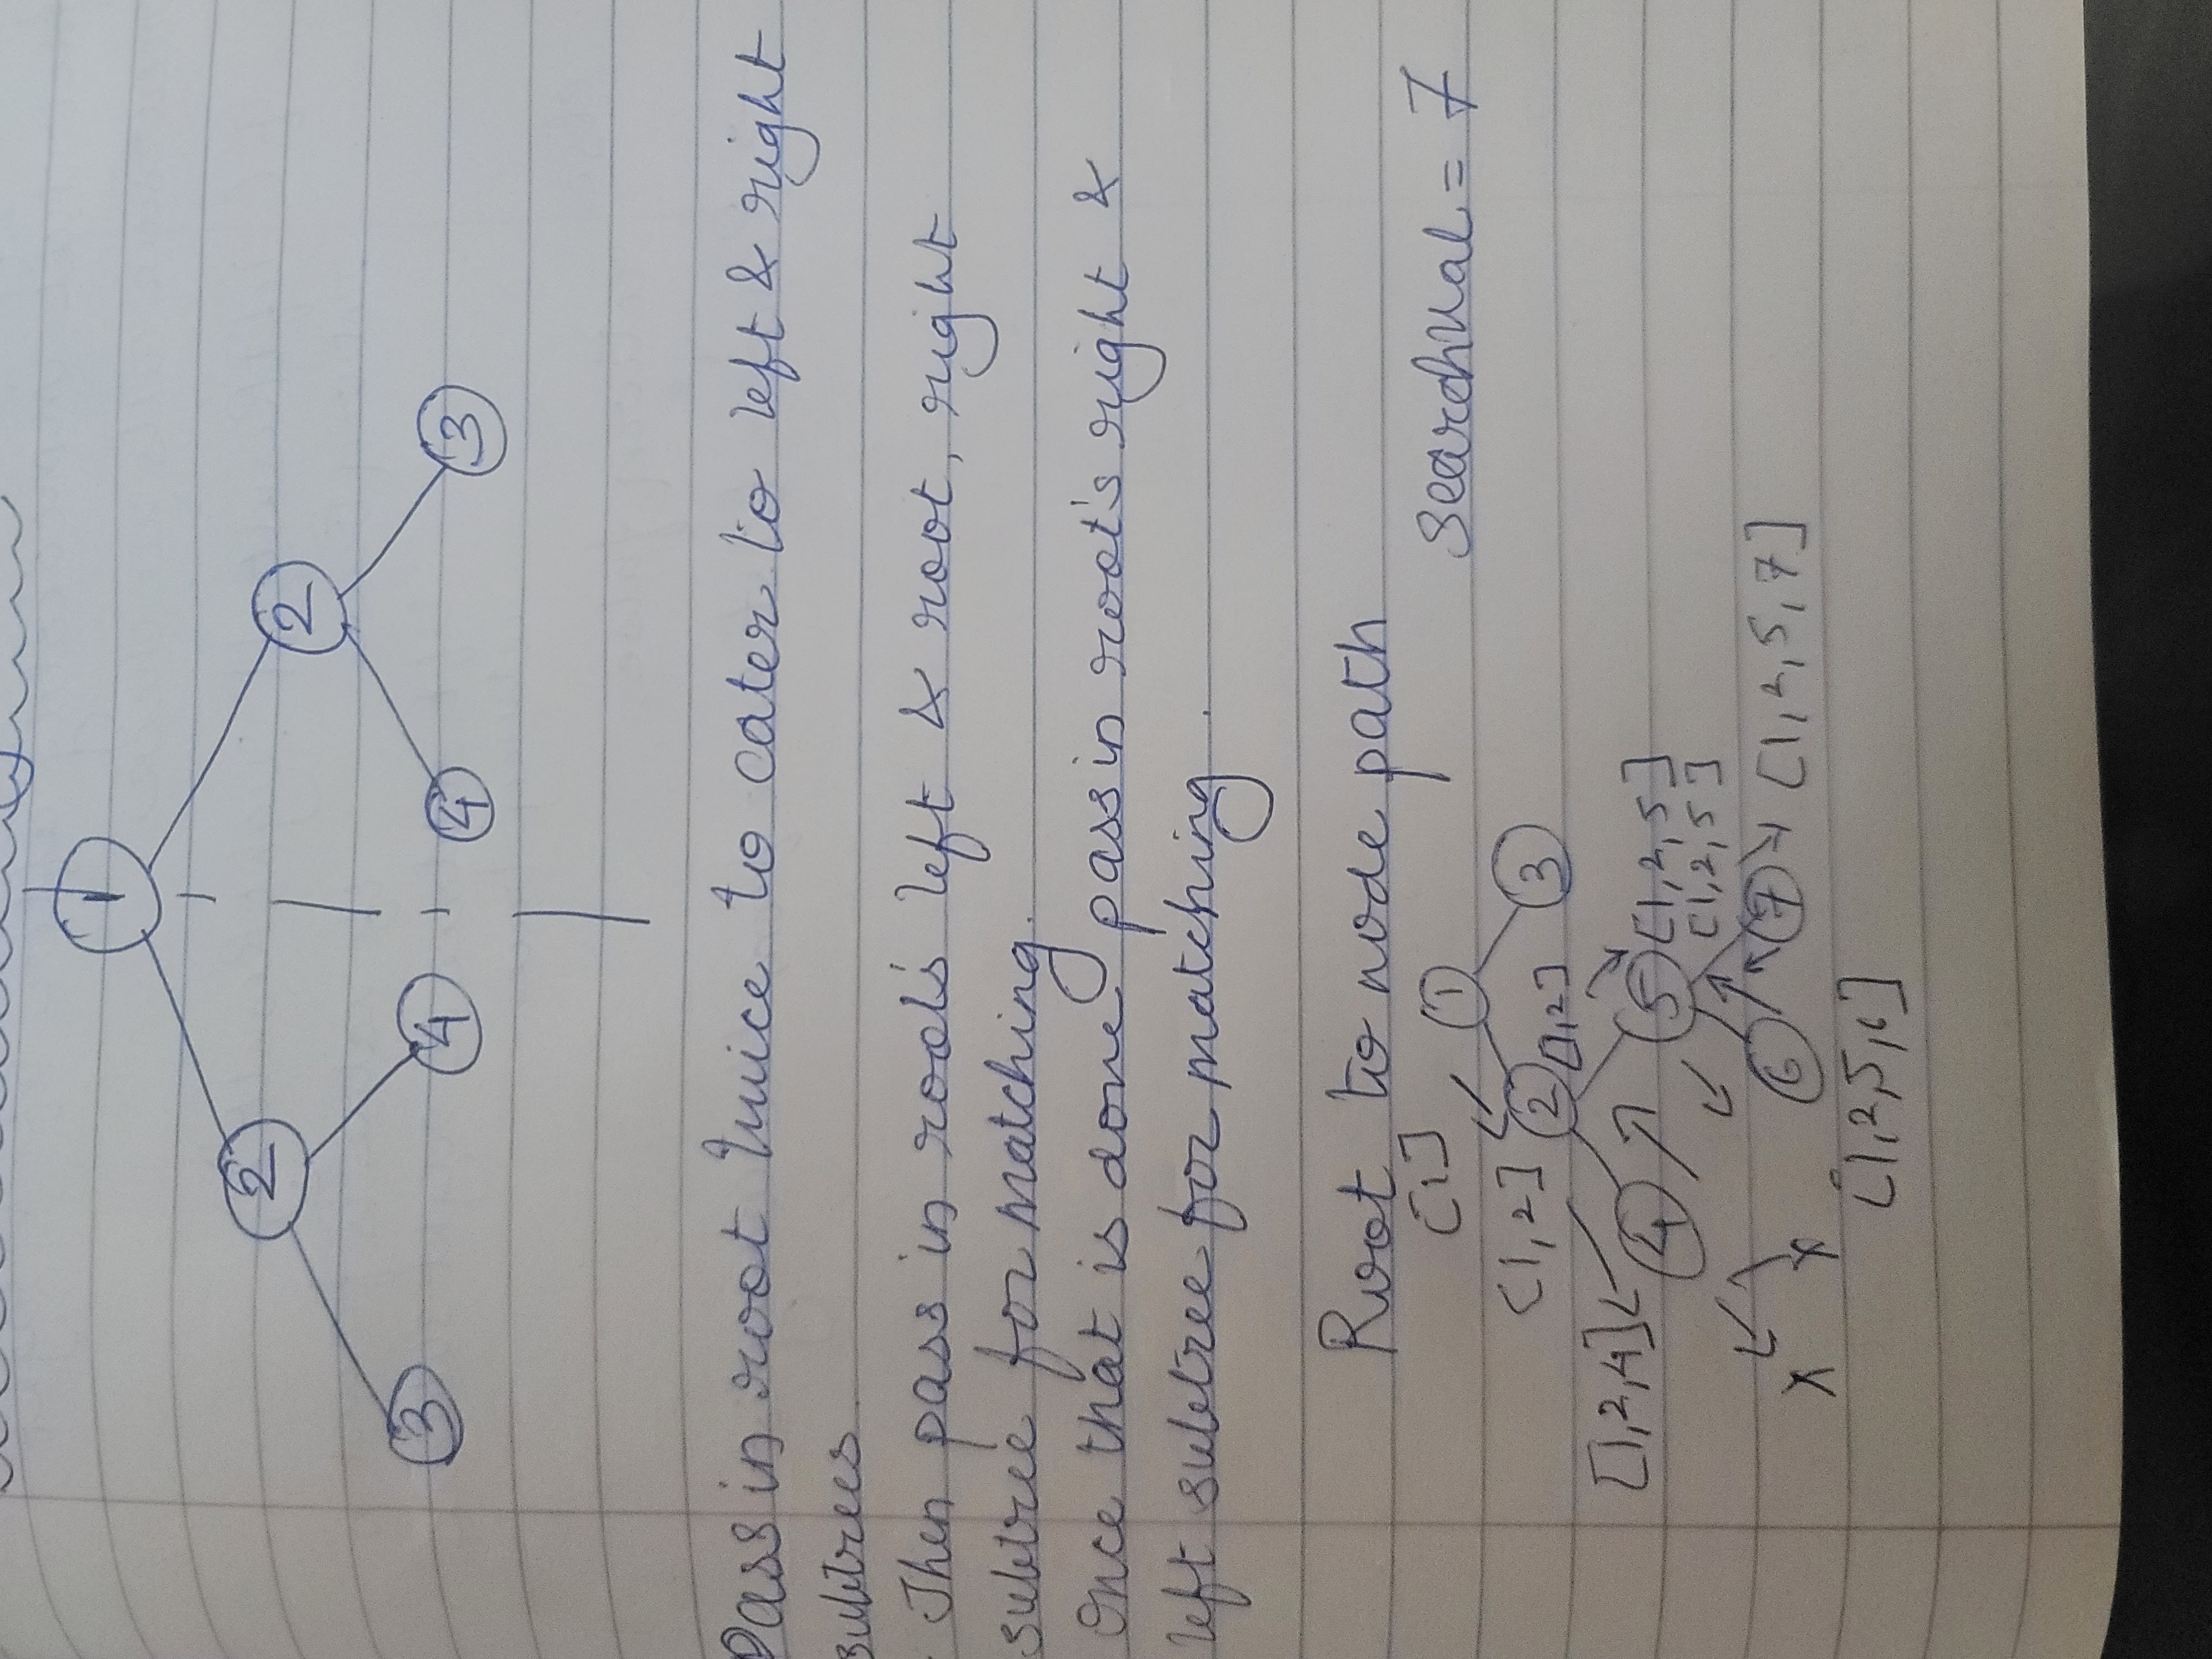 1
2
2
3
4
4
3
Pass in root twice to cater to left & right
subtrees.
Then pass in root's left & root, right
subtree for matching.
Once that is done pass in root's right &
left subtree for matching.
Root to node path
[1]
1
searchval = 7
[1,2]
2
[1,2]
3
[1,2,4]
4
5
[1,2,5]
[1,2,5]
x
x
6
7
[1,2,5,7]
[1,2,5,6]